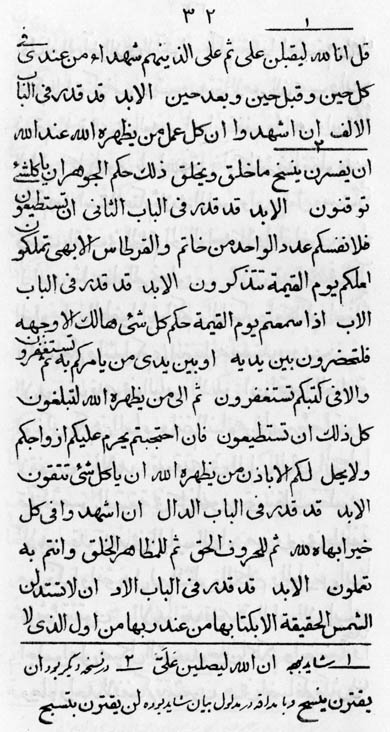 ٣٢
١
قل انا لله ليقبلن على ثم على الذينهم شهداء من عندى فى
كل حين وقبل حين وبعد حين الابد قد قدر فى الباب
الالف ان اشهدوا ان كل عمل من يظهره الله عند الله
٢
ان يفسرن بنسج ما خلق ويخلق ذلك حكم الجوهر ان ياكلشئ
توقنون الابد قد قدر فى الباب الثانى ان تستطيعون
فلانفسكم عدد الواحد من خاتم والقرطاس الابهى تملكون
لعلكم يوم القيمة تتذكرون الابد قد قدر فى الباب
الاب اذا سمعتم يوم القيمة حكم كل شئ هالك الا وجهه
فلتحضرون بين يديه او بين يدى من يامركم به ثم تستغفرون
والا فى كتبكم تستغفرون ثم الى من يظهره الله لتبلغون
كل ذلك ان تستطيعون فان احتجبتم يحرم عليكم ازواجكم
ولا يحل لكم الا باذن من يظهره الله ان ياكلشئ تتقون
الابد قد قدر فى الباب الدال ان اشهدوا فى كل
خير ابهاه لله ثم للحروف الحى ثم للمظاهر الخلق وانتم به
تعملون الابد قد قدر فى الباب الاو ان لا تستدلن
الشمس الحقيقة الا بكتابها من عند ربها من اول الذى لا
١ شايد بهجه ان الله ليصلين علىّ ٢ در نسخه ديگر بود ان
يقترن بنسج و با مداقه در مدلول بيان شايد بوده لن يقترن بتسبح